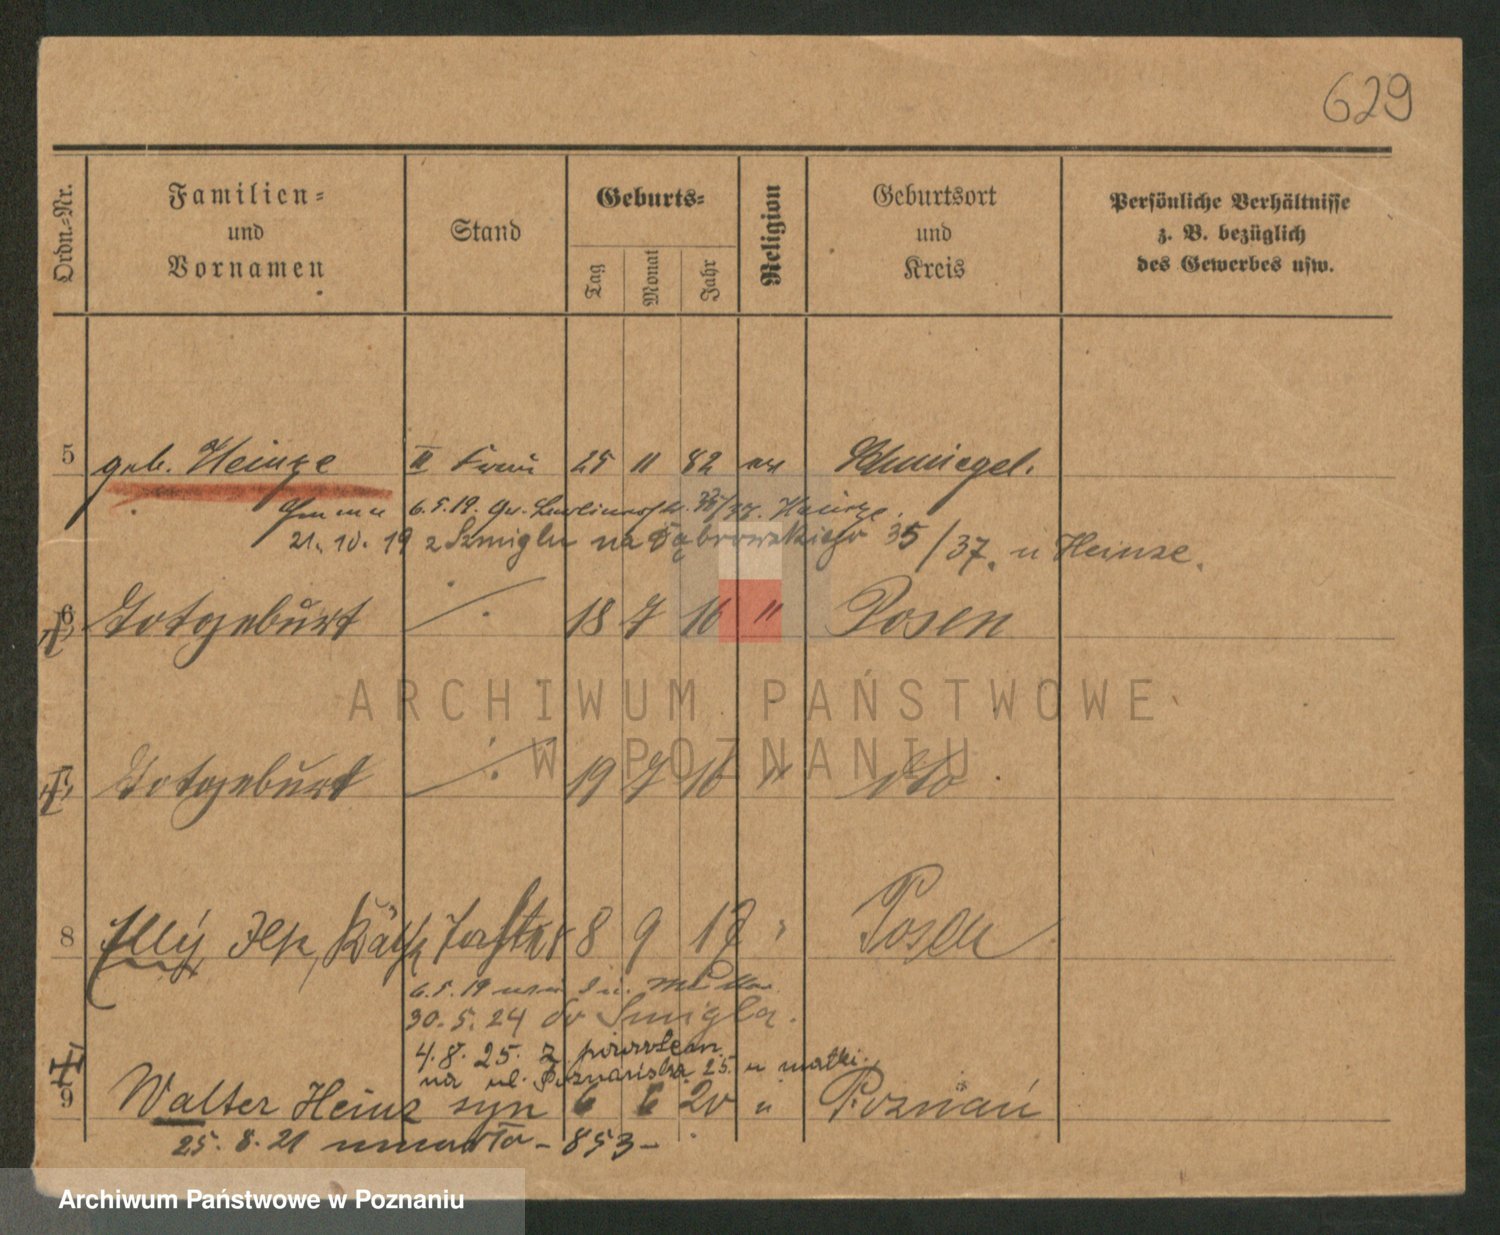 629
Ordn.-Nr.
Familien-
und
Vornamen
Stand
Geburts-
Tag
Monat
Jahr
Religion
Geburtsort
und
Kreis
Persönliche Verhältnisse
z. B. bezüglich
des Gewerbes usw.
5 geb. Heinze II Frau 25 11 82 ev Schmiegel.
6.5.19. Heinze.
21.10.19 z Szmigla na Dąbrowskiego 35/37. u Heinze.
6 Totgeburt 18 7 16 " Posen
Totgeburt 19 7 16 " dto
ARCHIWUM PAŃSTWOWE
W POZNANIU
8 Elly, Ilse, Käthe Tochter 8 9 17 " Posen
6.5.19
30.5.24 do Smigla.
4.8.25. z powrotem
na ul. Poznańska 25. u matki.
9 Walter Heinz syn 6 6 20 " Poznań
25.8.21 umarła - 853 -
Archiwum Państwowe w Poznaniu